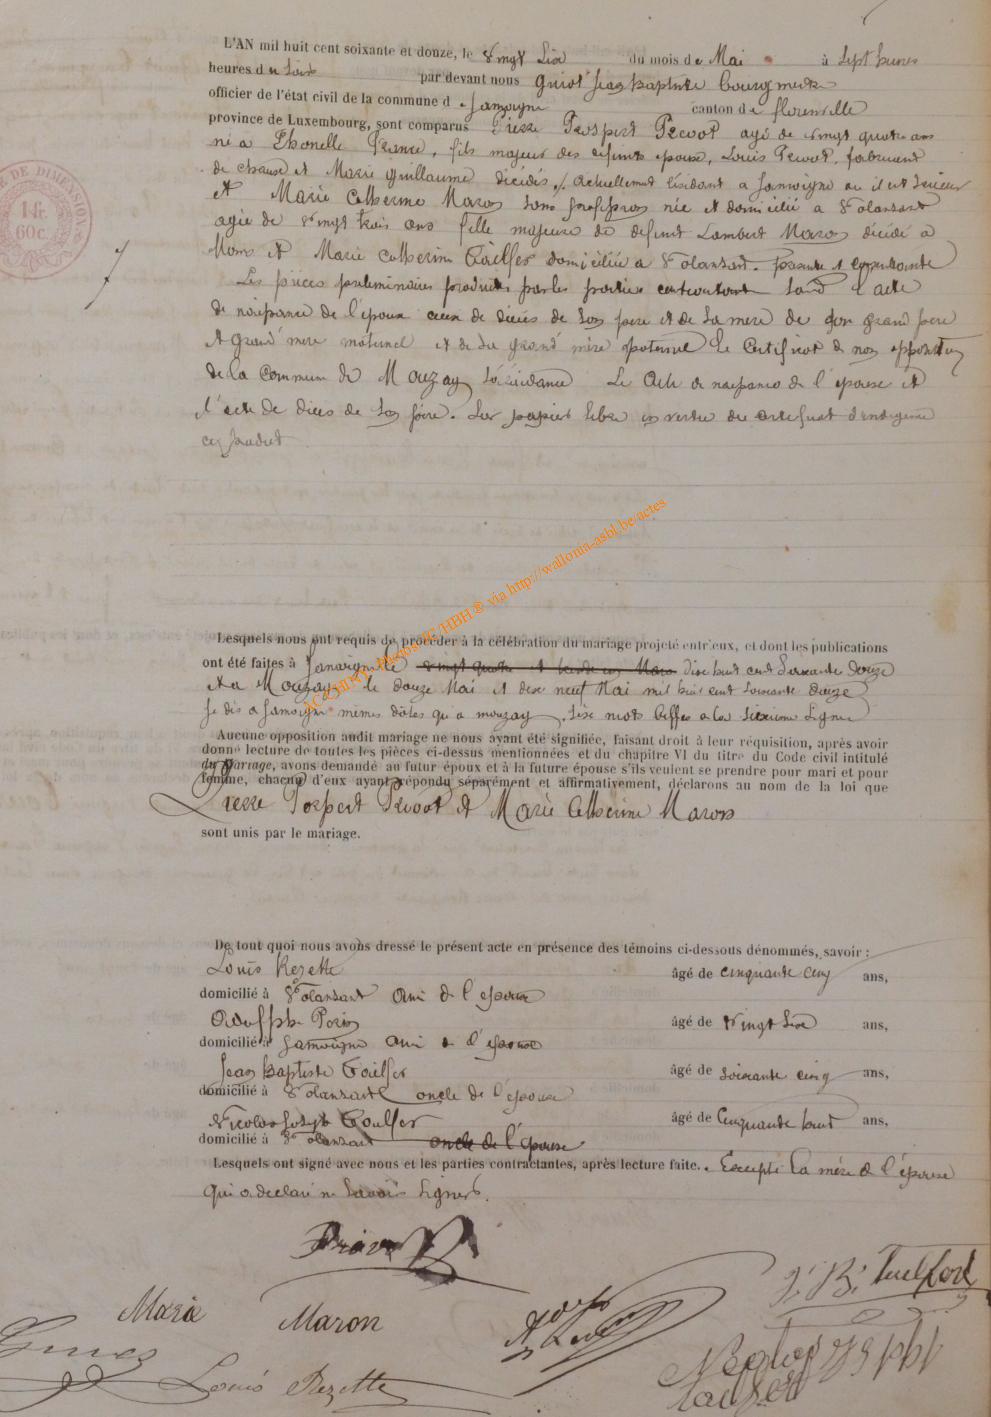 L'AN mil huit cent soixante et douze, le vingt six du mois de Mai à sept heures
heures du soir par devant nous Guiot Jean Baptiste bourgmestre
officier de l'état civil de la commune de Jamoigne canton de florenville
province de Luxembourg, sont comparus Pierre Prospert Prevot agé de vingt quatre ans
né a Thonelle France, fils majeur des defunts epoux, Louis Prevot, fabricant
de chaux et Marie Guillaume décédés, actuellement résidant a Jamoigne ou il est
et Marie Catherine Maron sans profession née et domiciliée a Valansart
agée de vingt trois ans fille majeure de defunt Lambert Maron décédé a
et Marie Catherine domiciliée a Valansart. présente et consentante
Les pièces preliminaires produites par les parties contractant sont l'acte
de naissance de l'époux ceux de décès de son père et de sa mere de son grand père
et grand mère maternel et de sa grand mère paternel le certificat de non opposition
de la commune de Mouzay sa résidance Le acte de naissance de l'épouse et
l'acte de décès de son père. Sur papier libre en vertu du certificat d'indigence
ci produit
ACCASBL-Photos 02/HBH © via http://wallonia-asbl.be/actes
Lesquels nous ont requis de procéder à la célébration du mariage projeté entr'eux, et dont les publications
ont été faites à Jamoigne le vingt quatre et trente un Mars dixe huit cent soixante douze
et a Mouzay le douze Mai et dixe neuf Mai mil huit cent soixante douze
Je dis a Jamoigne mèmes dates qu'a mouzay. Sixe mots biffés a la ligne
Aucune opposition audit mariage ne nous ayant été signifiée, faisant droit à leur réquisition, après avoir
donné lecture de toutes les pièces ci-dessus mentionnées et du chapitre VI du titre du Code civil intitulé
du Mariage, avons demandé au futur époux et à la future épouse s'ils veulent se prendre pour mari et pour
femme, chacun d'eux ayant répondu séparément et affirmativement, déclarons au nom de la loi que
Pierre Prospert Prevot et Marie Catherine Maron
sont unis par le mariage.
De tout quoi nous avons dressé le présent acte en présence des témoins ci-dessous dénommés, savoir :
Louis Rezette âgé de cinquante cinq ans,
domicilié à Valansart ami de l'épouse
Adolphe Poron âgé de vingt sixe ans,
domicilié à Jamoigne ami de l'épouse
Jean Baptiste âgé de soixante cinq ans,
domicilié à Valansart oncle de l'épouse
Nicolas Joseph âgé de Cinquante huit ans,
domicilié à Valansart oncle de l'épouse
Lesquels ont signé avec nous et les parties contractantes, après lecture faite. Excepté la mère de l'épouse
qui a déclaré ne savoir signer.
Prévot
J. B.
Marie Maron
Louis Rezette
1 fr.
60c.